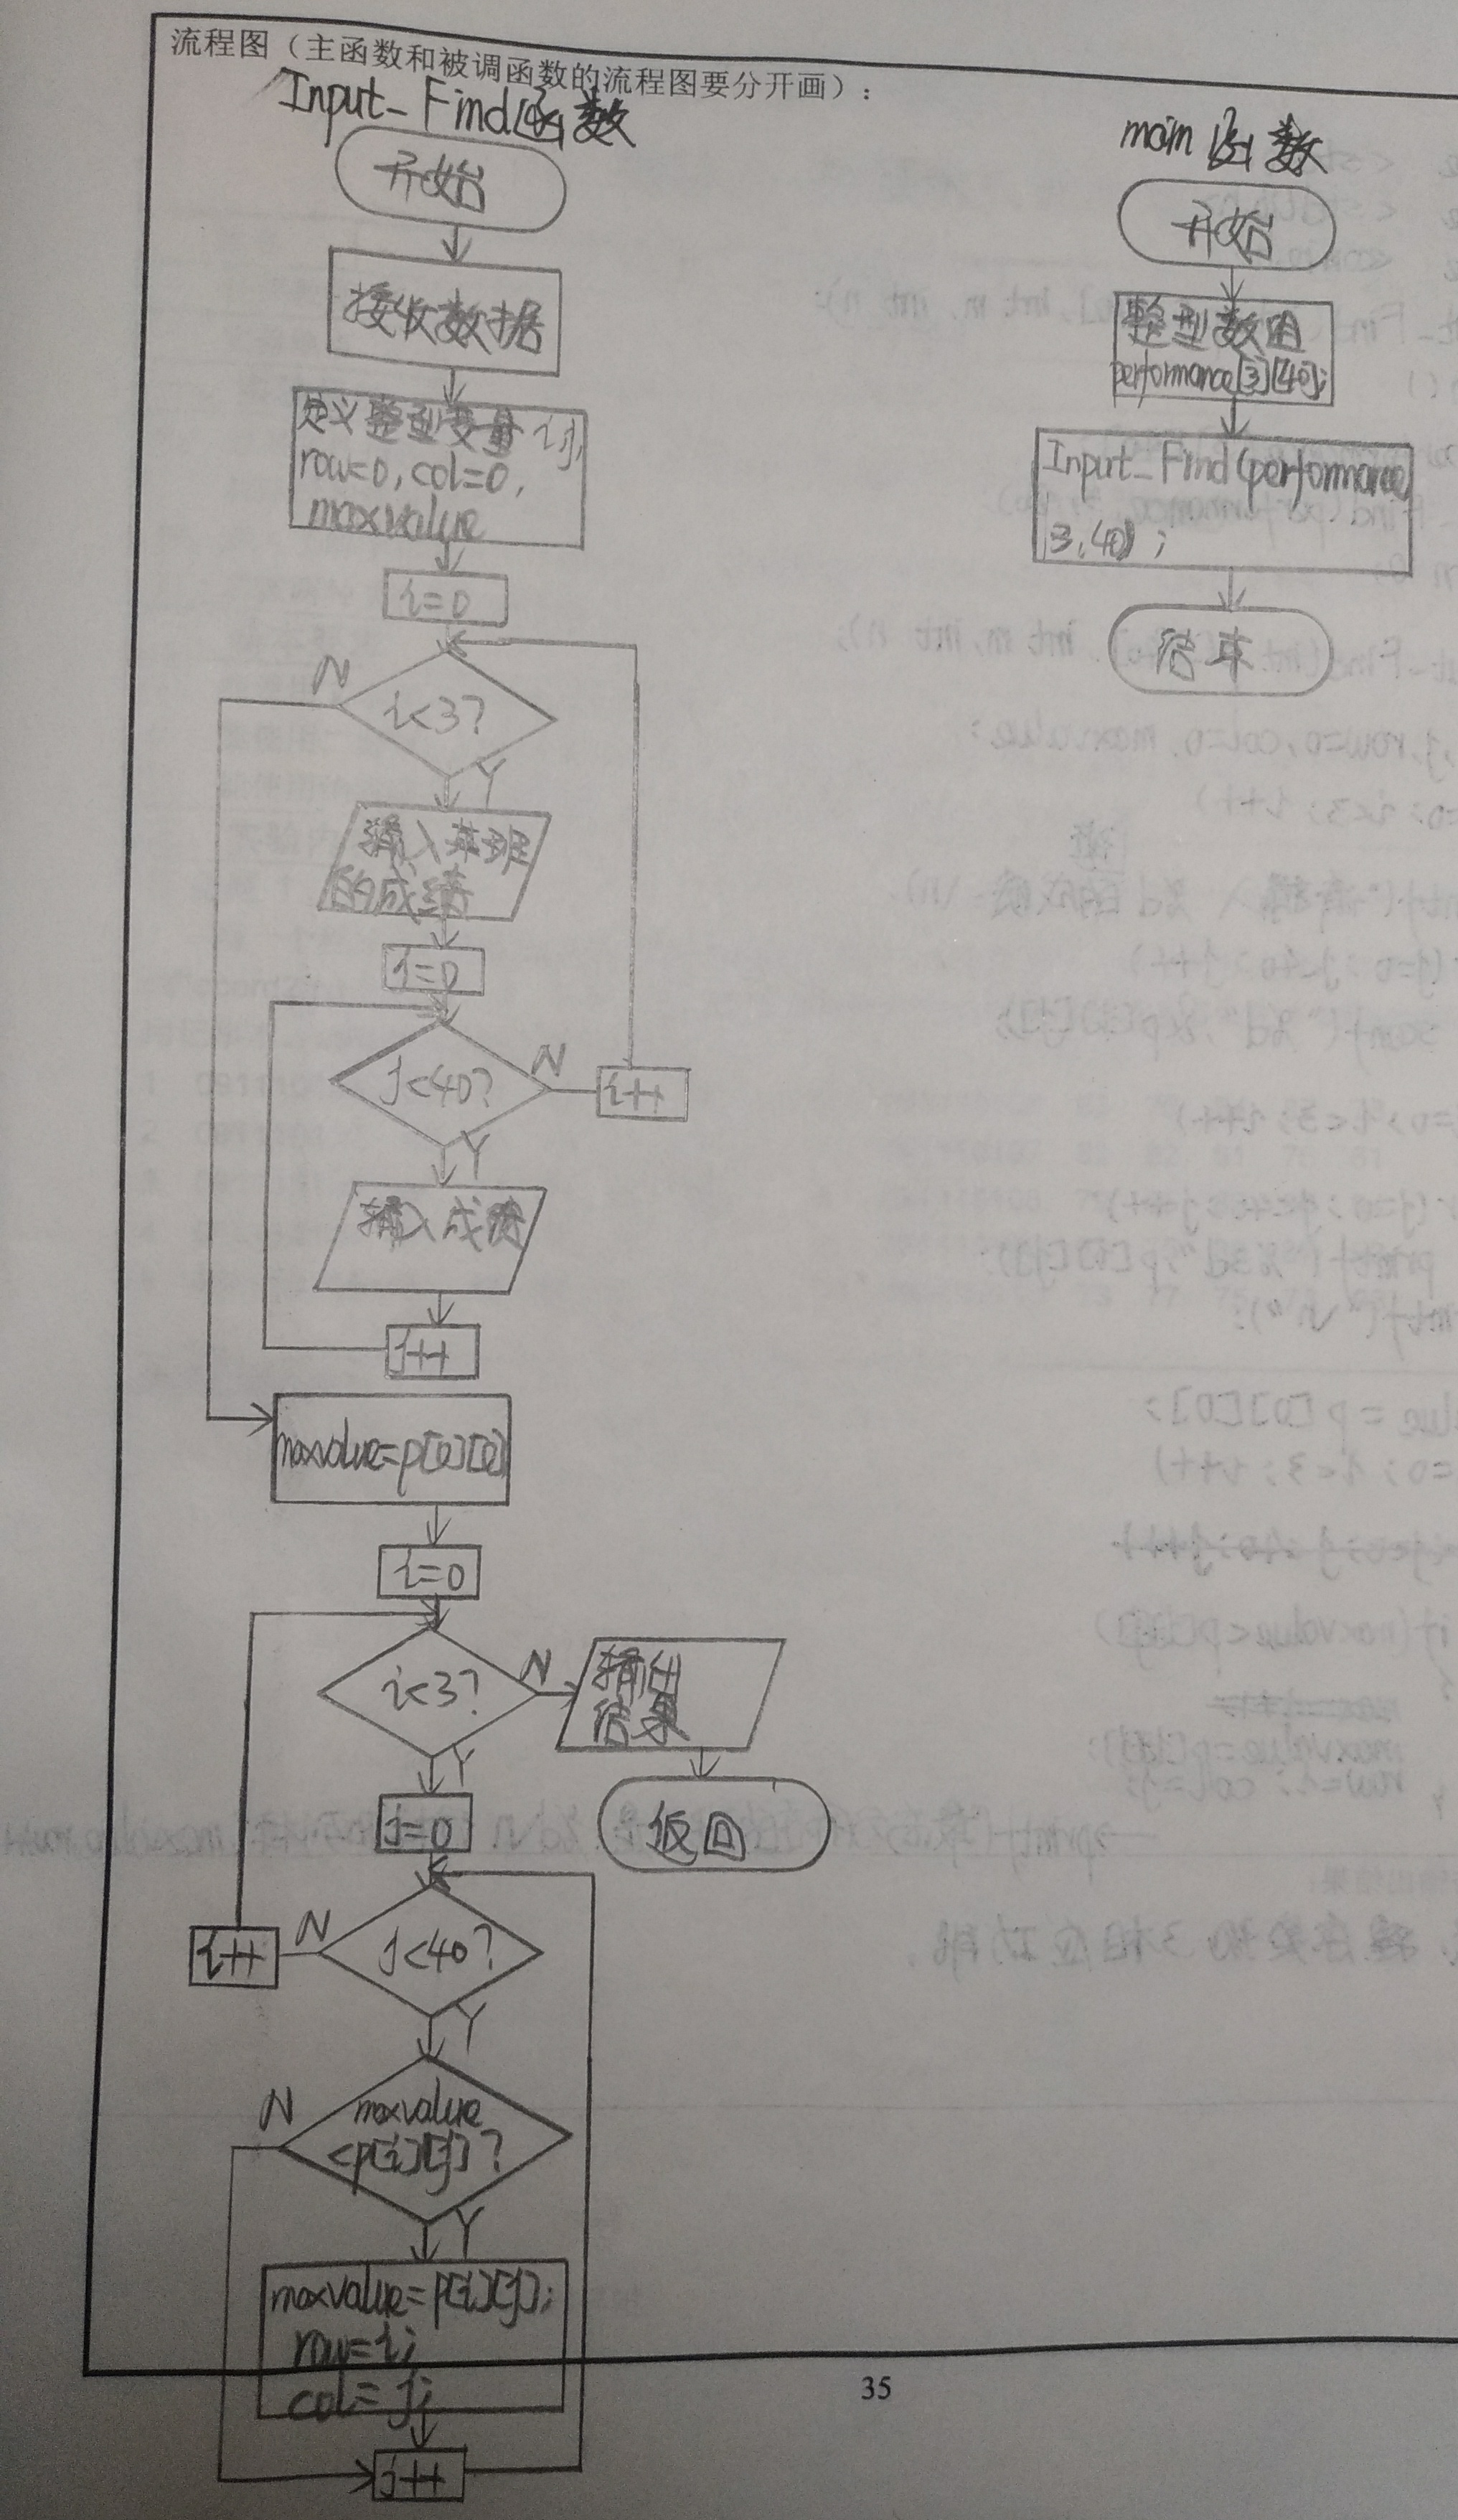 流程图（主函数和被调函数的流程图要分开画）：
Input_Find函数
开始
接收数据
定义整型变量i,j,
row=0,col=0,
maxvalue
i=0
i<3?
N
Y
输入某班
的成绩
j=0
j<40?
N
i++
Y
输入成绩
j++
maxvalue=p[0][0]
i=0
i<3?
N
输出
结果
返回
Y
j=0
j<40?
N
i++
Y
maxvalue
<p[i][j]?
N
Y
maxvalue=p[i][j];
row=i;
col=j;
j++
main函数
开始
整型数组
performance[3][40];
Input_Find(performance,
3,40);
结束
35